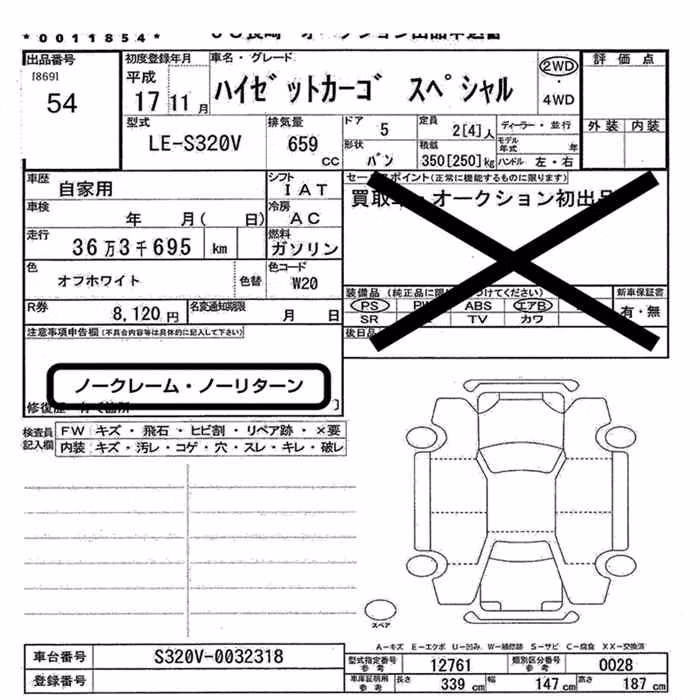 *0011854*
オークション出品申込書
出品番号
[869]
54
初度登録年月
平成
17 11 月
車名・グレード
ハイゼットカーゴ スペシャル
2WD
・
4WD
評価点
外装 内装
型式
LE-S320V
排気量
659
cc
ドア 5
定員 2[4]人
ディーラー・並行
形状 バン
積載 350[250]kg
モデル年式 年
ハンドル 左・右
車歴
自家用
シフト
IAT
車検
年 月( 日)
冷房
AC
走行
36万3千695 km
燃料
ガソリン
色
オフホワイト
色替
色コード
W20
R券
8,120円
名変通知期限
月 日
セールスポイント(正常に機能するものに限ります)
買取車 オークション初出品
装備品(純正品に限
つけてください)
PS
ABS
エアB
SR
TV
カワ
新車保証書
有・無
後日品
注意事項申告欄(不具合内容等は具体的に記入して下さい)
ノークレーム・ノーリターン
修復歴
検査員記入欄
FW キズ・飛石・ヒビ割・リペア跡・×要
内装 キズ・汚レ・コゲ・穴・スレ・キレ・破レ
スペア
A-キズ E-エクボ U-凹み W-補修跡 S-サビ C-腐食 XX-交換済
車台番号
S320V-0032318
登録番号
型式指定番号参考
12761
類別区分番号参考
0028
車庫証明用参考
長さ 339 cm
幅 147 cm
高さ 187 cm